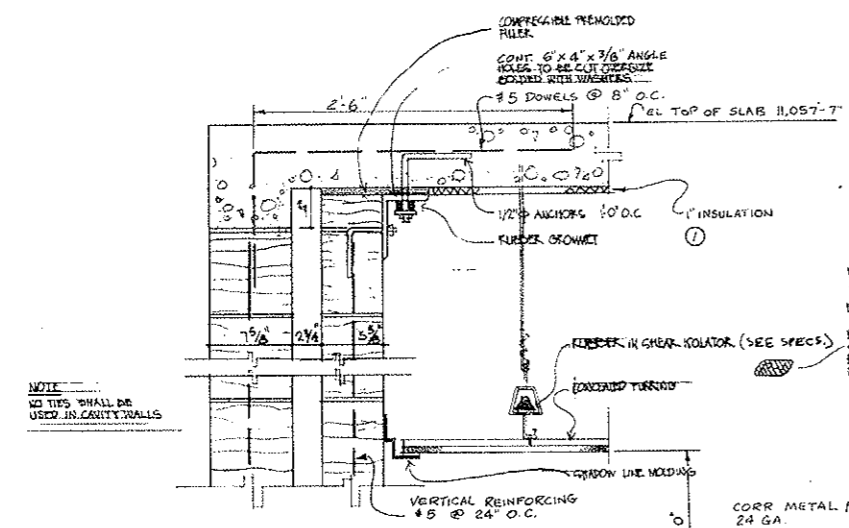 COMPRESSIBLE PREMOLDED
FILLER
CONT. 6" X 4" X 3/8" ANGLE
HOLES TO BE CUT OVERSIZE
BOLTED WITH WASHERS
#5 DOWELS @ 8" O.C.
2'-6"
EL TOP OF SLAB 11,057'-7"
1/2" Φ ANCHORS 1'-0" O.C
1" INSULATION
1
RUBBER GROMMET
4"
7 5/8"
2 3/4"
5 5/8"
RUBBER IN SHEAR ISOLATOR (SEE SPECS.)
NOTE
NO TIES SHALL BE
USED IN CAVITY WALLS
CONCEALED FURRING
SHADOW LINE MOLDING
VERTICAL REINFORCING
#5 @ 24" O.C.
CORR METAL
24 GA.